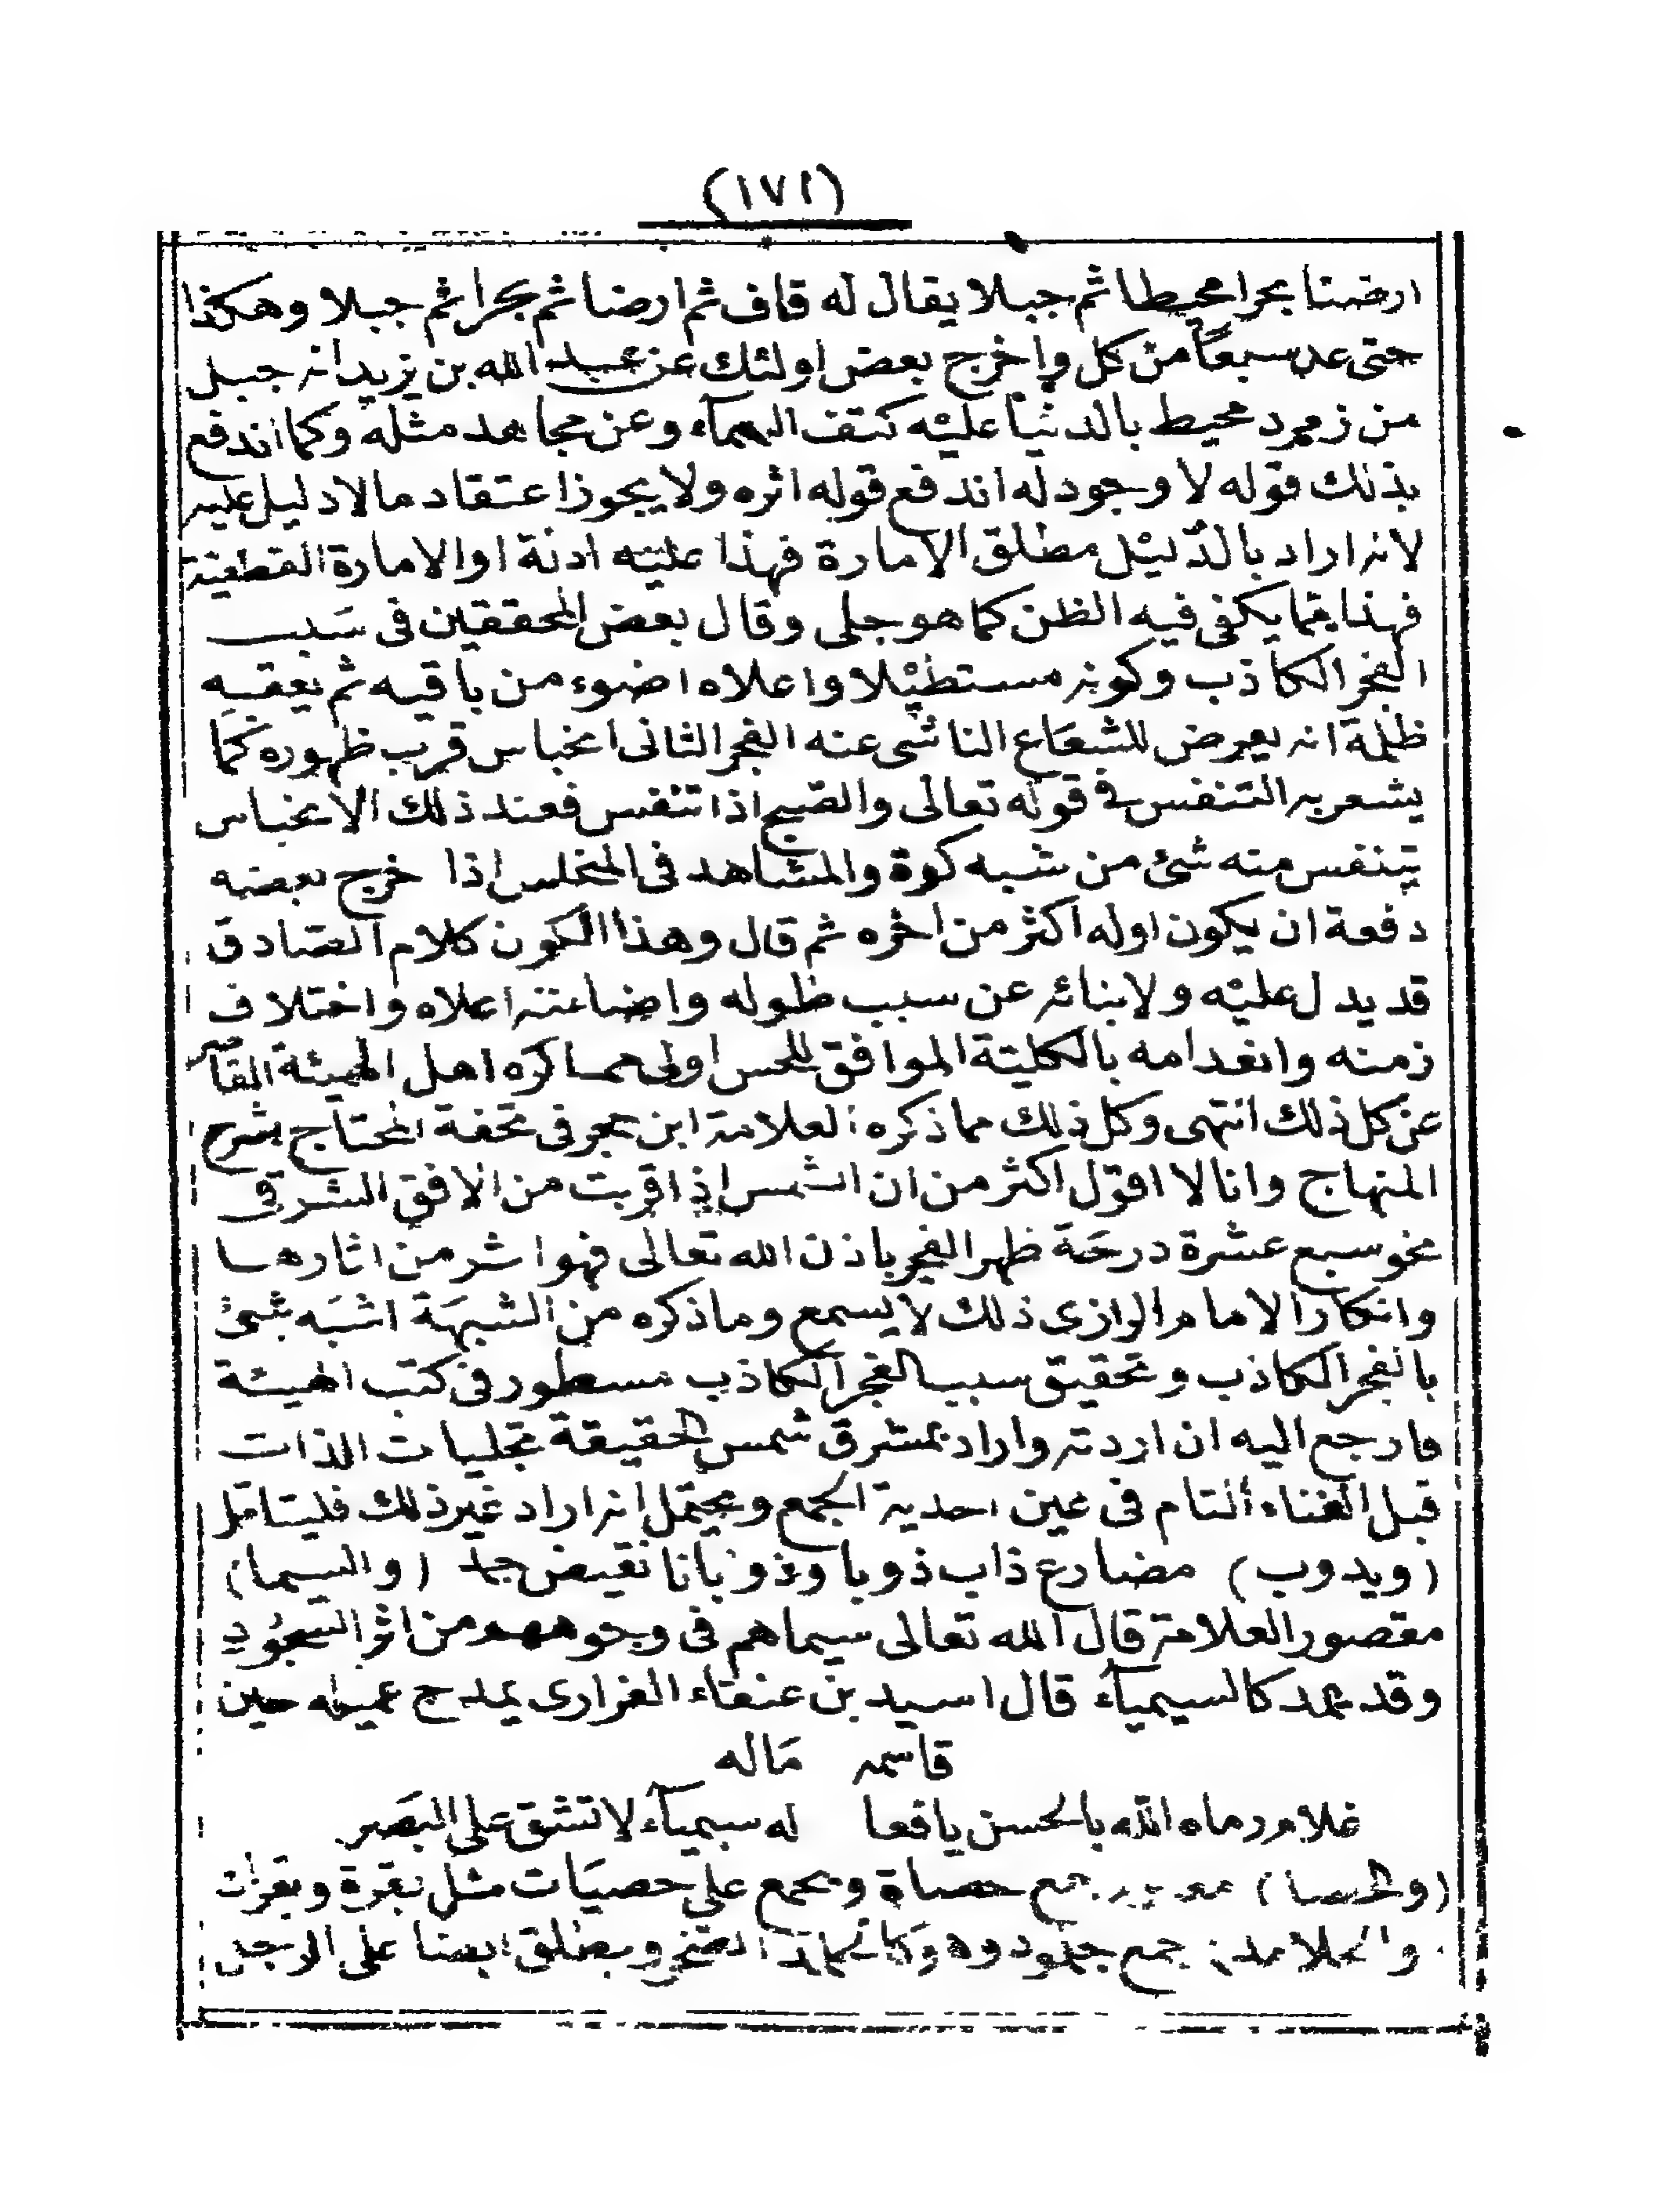 (١٧١)
ارضنا بحرا محيطا ثم جبلا يقال له قاف ثم ارضا ثم بحرا ثم جبلا وهكذا
حتى عد سبعاً من كل واخرج بعض اولئك عن عبد الله بن يزيد انه جبل
من زمرد محيط بالدنيا عليه كتف السمآء وعن مجاهد مثله وكما اندفع
بذلك قوله لا وجود له اندفع قوله اثره ولا يجوز اعتقاد ما لا دليل عليه
لانه اراد بالدليل مطلق الامارة فهذا عليه ادلة او الامارة القطعية
فهذا مما يكفى فيه الظن كما هو جلى وقال بعض المحققين فى سَبب
الفجر الكاذب وكونه مستطيلا واعلاه اضوء من باقيه ثم يعقبه
ظلمة انه يعرض للشعاع الناشى عنه الفجر الثانى انحباس قرب ظهوره كما
يشعر به التنفس فى قوله تعالى والصبح اذا تنفس فعند ذلك الانحباس
يتنفس منه شئ من شبه كوة والمشاهد فى المنحبس اذا خرج بعضه
دفعة ان يكون اوله اكثر من اخره ثم قال وهذا الكون كلام الصادق
قد يدل عليه ولابنائه عن سبب طوله واضاءته اعلاه واختلاف
زمنه وانعدامه بالكلية الموافق للحس اولى مما ذكره اهل الهيئة القاصر
عن كل ذلك انتهى وكل ذلك مما ذكره العلامة ابن حجر فى تحفة المحتاج بشرح
المنهاج وانا لا اقول اكثر من ان الشمس اذا قربت من الافق الشرقى
نحو سبع عشرة درجة ظهر الفجر باذن الله تعالى فهو اثر من اثارها
وانكار الامام الرازى ذلك لا يسمع وما ذكره من الشبهة اشبه شئ
بالفجر الكاذب وتحقيق سبب الفجر الكاذب مسطور فى كتب الهيئة
فارجع اليه ان اردته واراد بمشرق شمس الحقيقة تجليات الذات
قبل الفناء التام فى عين احدية الجمع ويحتمل انه اراد غير ذلك فليتامل
(ويدوب) مضارع ذاب ذوبا وذوبانا نقيض جمد (والسيما)
مقصور العلامة قال الله تعالى سيماهم فى وجوههم من اثر السجود
وقد يمد كالسيميآء قال اسيد بن عنقاء الفزارى يمدح عميله حين
قاسمه مَاله
غلام رماه الله بالحسن يافعا له سيميآء لا تشق على البَصَر
(والحصا) جمع حصاة ويجمع على حصيَات مثل بقرة وبقرات
والجلامد جمع جلمود وهو الصخر ويطلق ايضا على الرجل